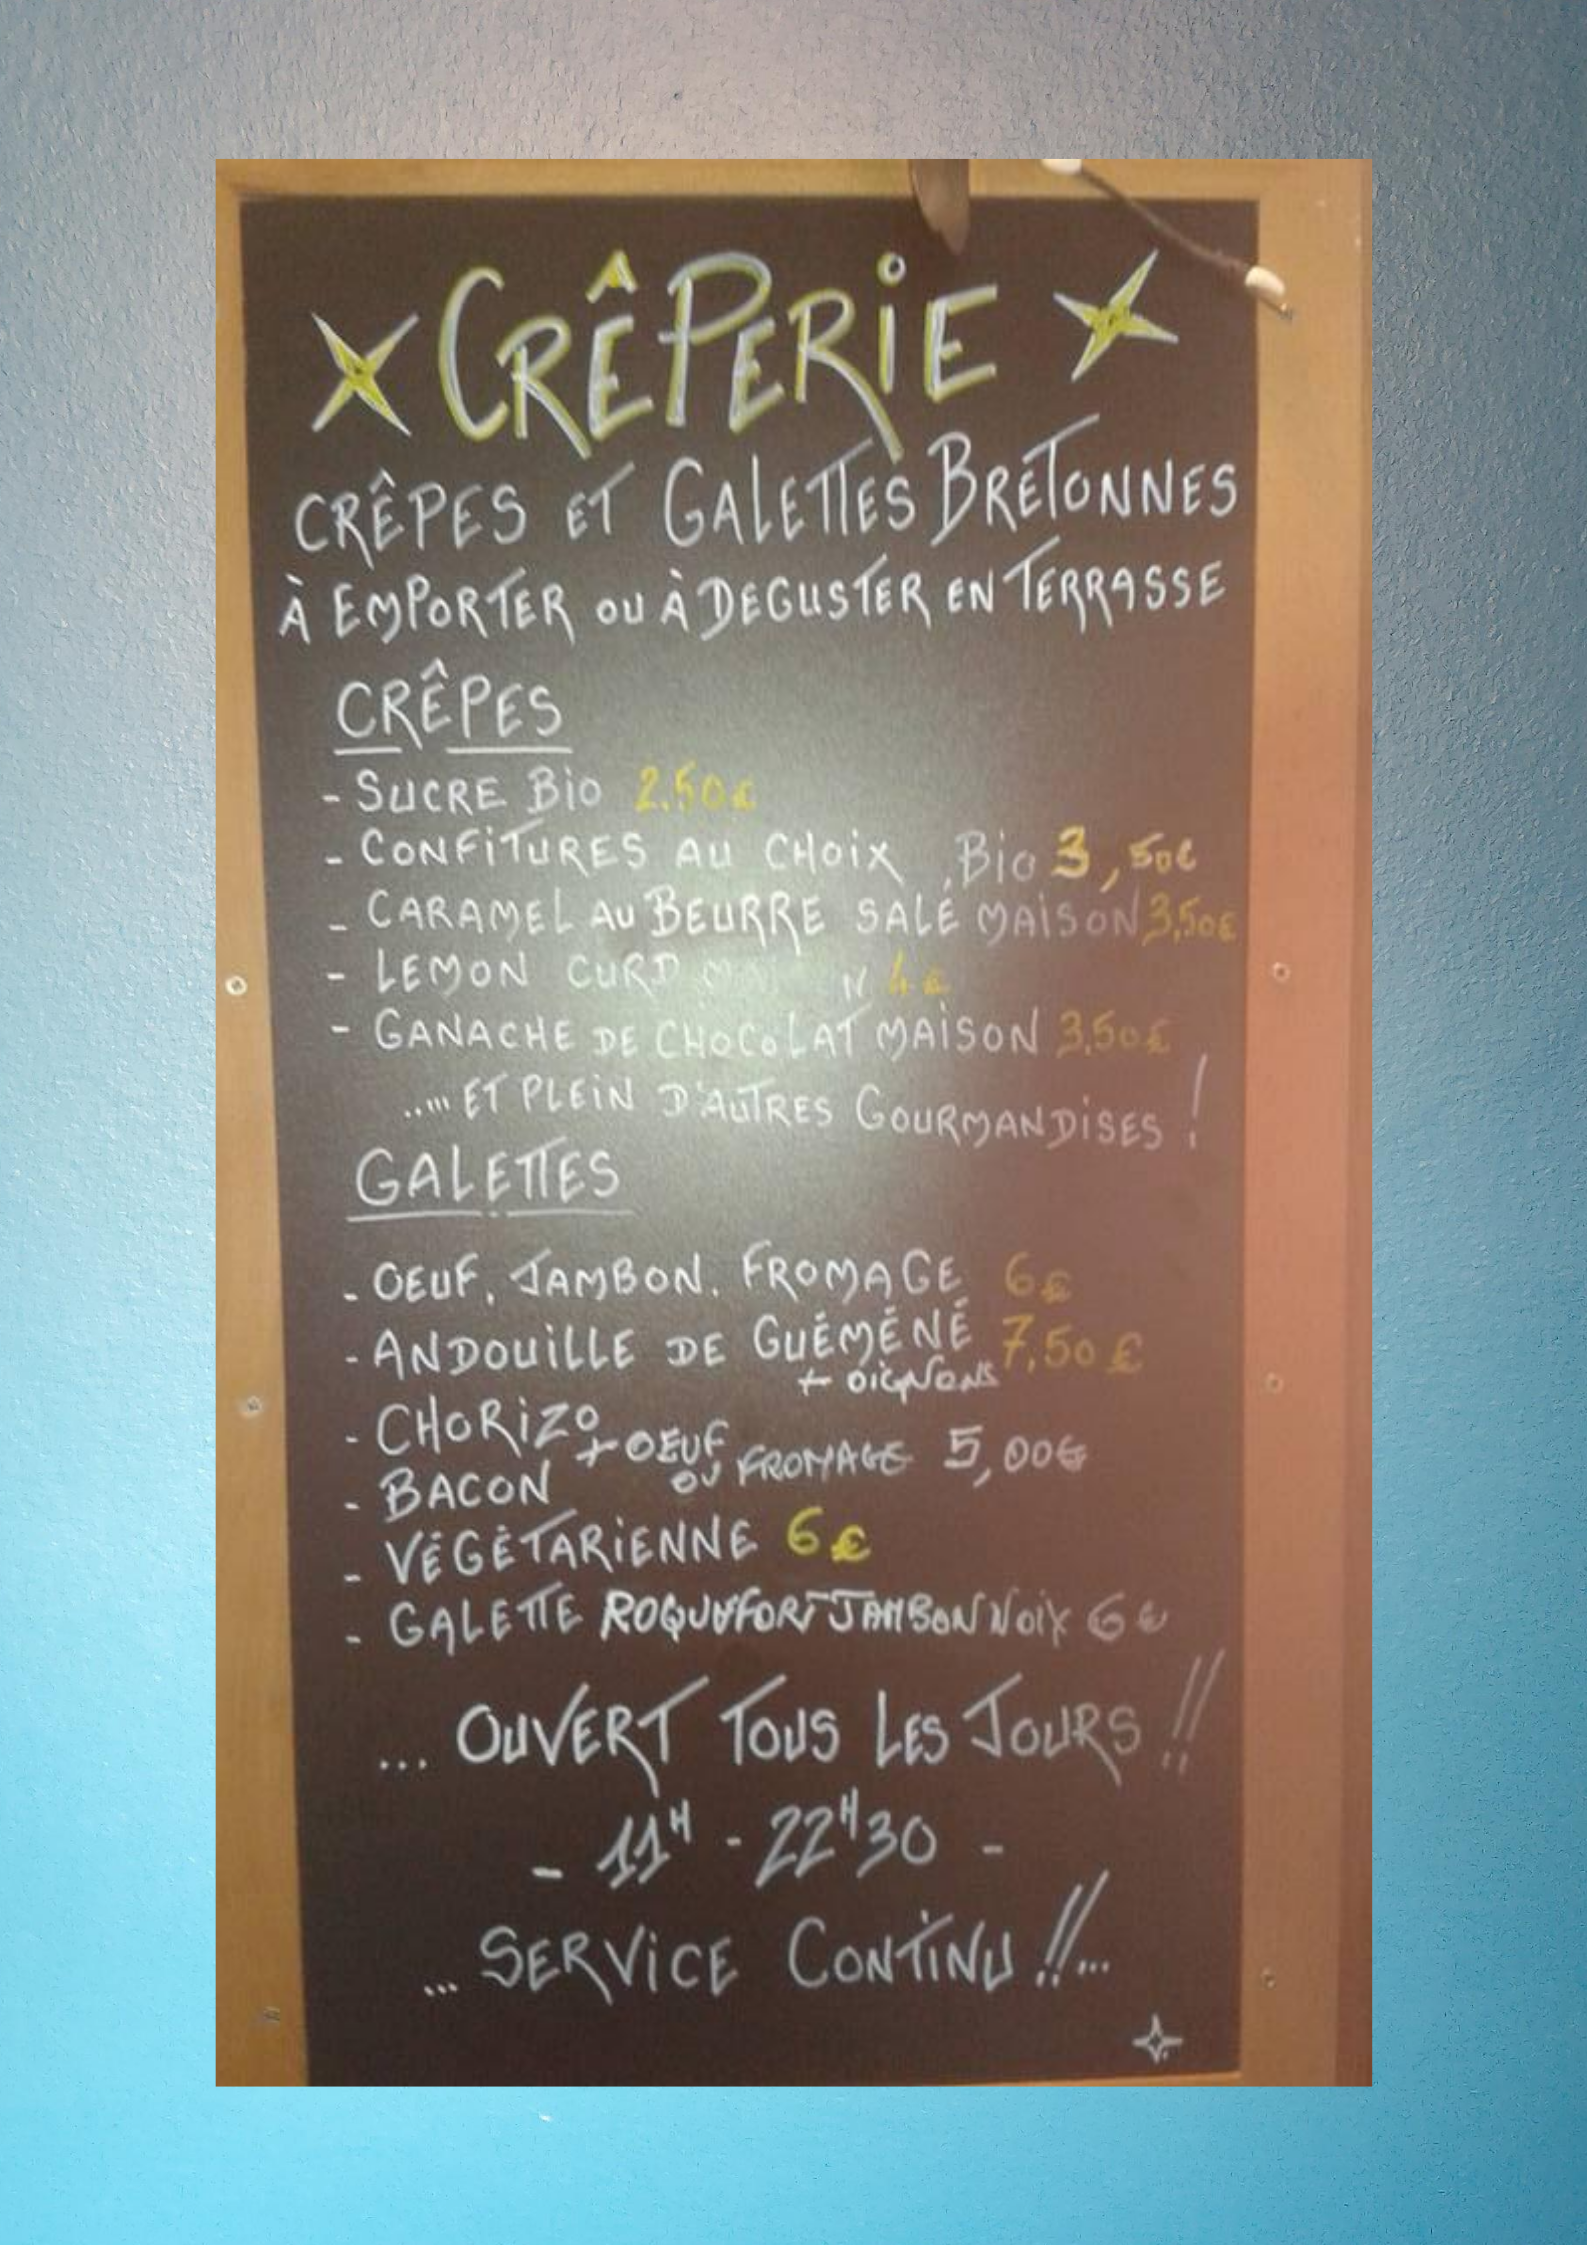 CRÊPERIE
CRÊPES ET GALETTES BRETONNES
À EMPORTER OU À DEGUSTER EN TERRASSE
CRÊPES
- SUCRE BIO 2.50€
- CONFITURES AU CHOIX BIO 3,50€
- CARAMEL AU BEURRE SALÉ MAISON 3,50€
- LEMON CURD 4€
- GANACHE DE CHOCOLAT MAISON 3,50€
..... ET PLEIN D'AUTRES GOURMANDISES !
GALETTES
- OEUF, JAMBON, FROMAGE 6€
- ANDOUILLE DE GUÉMÉNÉ 7,50€
+ OIGNONS
- CHORIZO + OEUF
OU FROMAGE 5,00€
- BACON
- VÉGÉTARIENNE 6€
- GALETTE ROQUEFORT JAMBON NOIX 6€
... OUVERT TOUS LES JOURS !!
- 11H - 22H30 -
... SERVICE CONTINU !!...